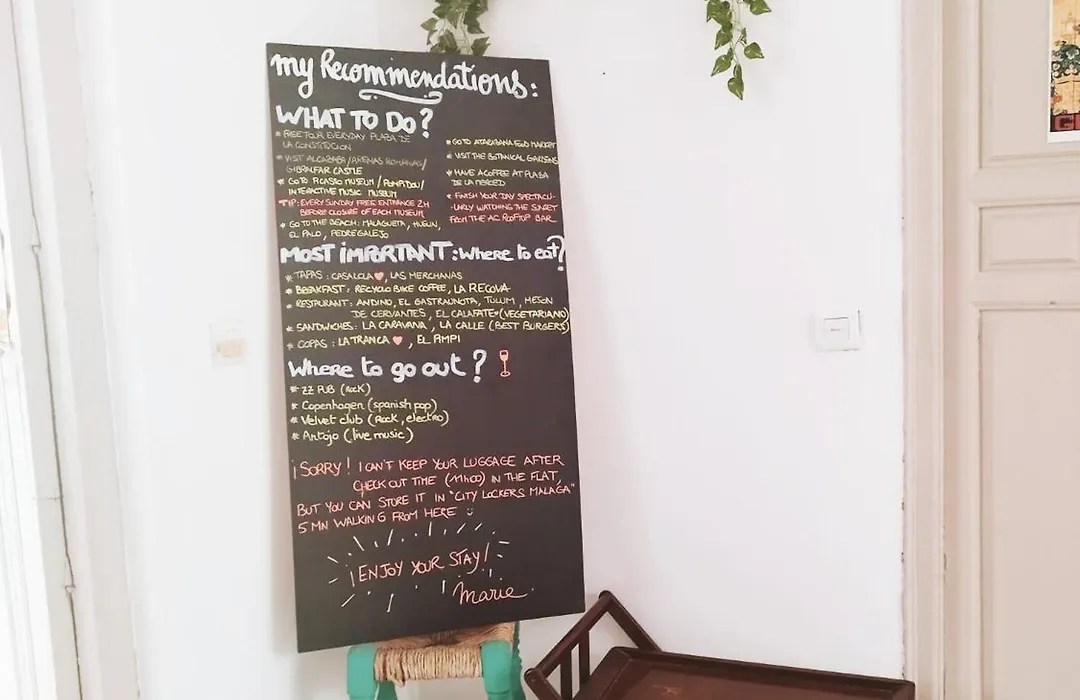 my Recommendations:
WHAT TO DO?
* FREE TOUR EVERYDAY PLAZA DE
LA CONSTITUCION
* VISIT ALCAZABA/ARENAS ROMANAS/
GIBRALFAR CASTLE
* GO TO PICASSO MUSEUM / POMPIDOU/
INTERACTIVE MUSIC MUSEUM
*TIP: EVERY SUNDAY FREE ENTRANCE 2H
BEFORE CLOSURE OF EACH MUSEUM
* GO TO THE BEACH: MALAGUETA, HUELIN,
EL PALO, PEDREGALEJO
* GO TO ATARAZANA FOOD MARKET
* VISIT THE BOTANICAL GARDENS
* HAVE A COFFEE AT PLAZA
DE LA MERCED
* FINISH YOUR DAY SPECTACU-
LARLY WATCHING THE SUNSET
FROM THE AC ROOFTOP BAR
MOST iMPORTANT: Where to eat?
* TAPAS: CASA LOLA, LAS MERCHANAS
* BREAKFAST: RECYCLO BIKE COFFEE, LA RECOVA
* RESTAURANT: ANDINO, EL GASTRAUNOTA, TULUM, MESON
DE CERVANTES, EL CALAFATE (VEGETARIANO)
* SANDWICHES: LA CARAVANA, LA CALLE (BEST BURGERS)
* COPAS: LA TRANCA, EL PIMPI
Where to go out?
* ZZ PUB (Rock)
* Copenhagen (spanish pop)
* Velvet club (Rock, electro)
* Antojo (live music)
¡SORRY! I CAN'T KEEP YOUR LUGGAGE AFTER
CHECK OUT TIME (11h00) IN THE FLAT,
BUT YOU CAN STORE IT IN "CITY LOCKERS MALAGA"
5 MN WALKING FROM HERE
¡ENJOY YOUR STAY!
Marie